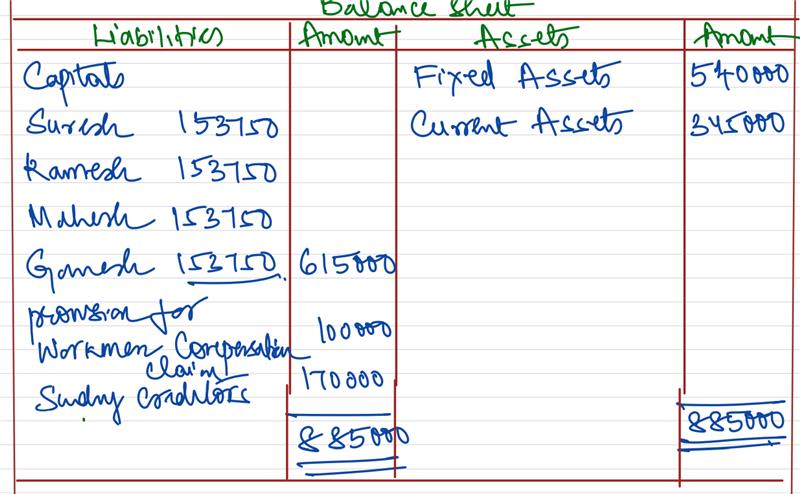 Balance Sheet
Liabilities Amount Assets Amount
Capitals Fixed Assets 540000
Suresh 153750 Current Assets 345000
Ramesh 153750
Mahesh 153750
Ganesh 153750 615000
provision for
Workmen Compensation 100000
claim
Sundry Creditors 170000
885000 885000